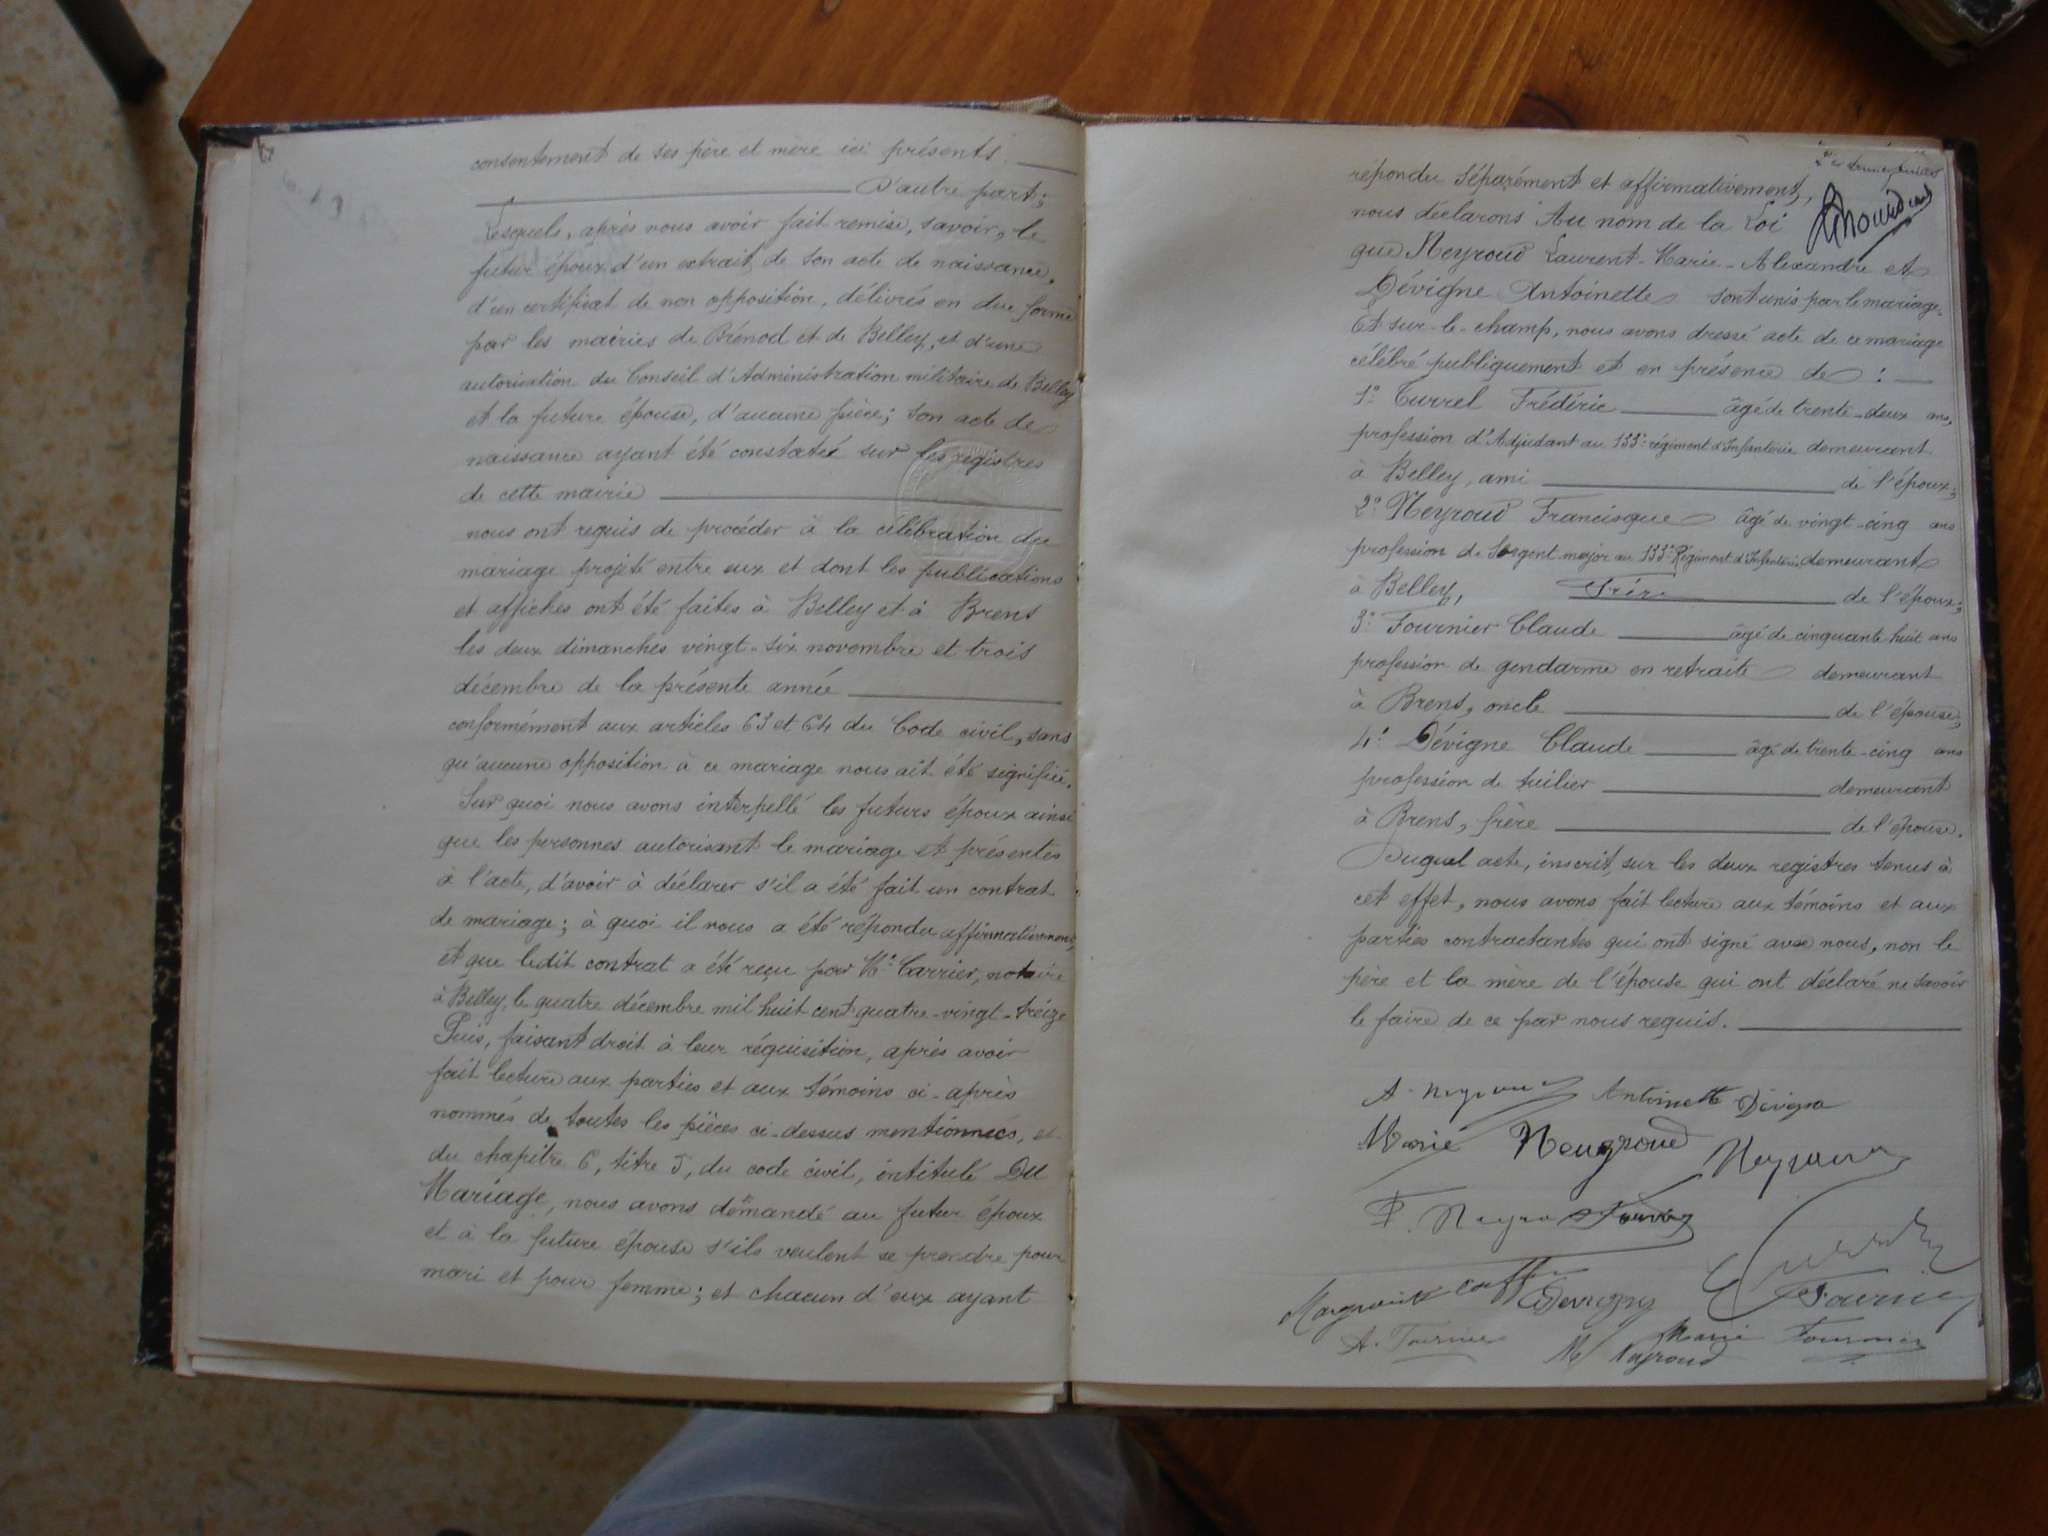 consentement de ses père et mère ici présents
D'autre part;
Lesquels, après nous avoir fait remise, savoir, le
futur époux d'un extrait de son acte de naissance,
d'un certificat de non opposition, délivrés en due forme
par les mairies de Brénod et de Belley, et d'une
autorisation du Conseil d'Administration militaire de Belley
et la future épouse, d'aucune pièce; son acte de
naissance ayant été constatée sur les registres
de cette mairie
nous ont requis de procéder à la célébration du
mariage projeté entre eux et dont les publications
et affiches ont été faites à Belley et à Brens
les deux dimanches vingt-six novembre et trois
décembre de la présente année
conformément aux articles 63 et 64 du Code civil, sans
qu'aucune opposition à ce mariage nous ait été signifiée.
Sur quoi nous avons interpellé les futurs époux ainsi
que les personnes autorisant le mariage et présentes
à l'acte, d'avoir à déclarer s'il a été fait un contrat
de mariage; à quoi il nous a été répondu affirmativement,
et que ledit contrat a été reçu par Me Carrier, notaire
à Belley, le quatre décembre mil huit cent quatre-vingt-treize
Puis, faisant droit à leur réquisition, après avoir
fait lecture aux parties et aux témoins ci-après
nommés de toutes les pièces ci-dessus mentionnées, et
du chapitre 6, titre 5, du code civil, intitulé Du
Mariage, nous avons demandé au futur époux
et à la future épouse s'ils veulent se prendre pour
mari et pour femme; et chacun d'eux ayant
répondu séparément et affirmativement,
nous déclarons Au nom de la Loi
que Neyroud Laurent-Marie-Alexandre et
Dévigne Antoinette sont unis par le mariage.
Et sur-le-champ, nous avons dressé acte de ce mariage
célébré publiquement et en présence de :
1° Turrel Frédéric âgé de trente-deux ans,
profession d'Adjudant au 133e régiment d'Infanterie demeurant
à Belley, ami de l'époux;
2° Neyroud Francisque âgé de vingt-cinq ans
profession de Sergent major au 133e Régiment d'Infanterie demeurant
à Belley, Frère de l'époux;
3° Fournier Claude âgé de cinquante huit ans
profession de gendarme en retraite demeurant
à Brens, oncle de l'épouse,
4° Dévigne Claude âgé de trente-cinq ans
profession de tuilier demeurant
à Brens, frère de l'épouse.
Duquel acte, inscrit sur les deux registres tenus à
cet effet, nous avons fait lecture aux témoins et aux
parties contractantes qui ont signé avec nous, non le
père et la mère de l'épouse qui ont déclaré ne savoir
le faire de ce par nous requis.
A. Neyroud Antoinette Dévigne
Marie Neyroud Neyroud
F. Neyroud
Marguerite Devigne Fournier
A. Fournier Marie Fournier
M Neyroud